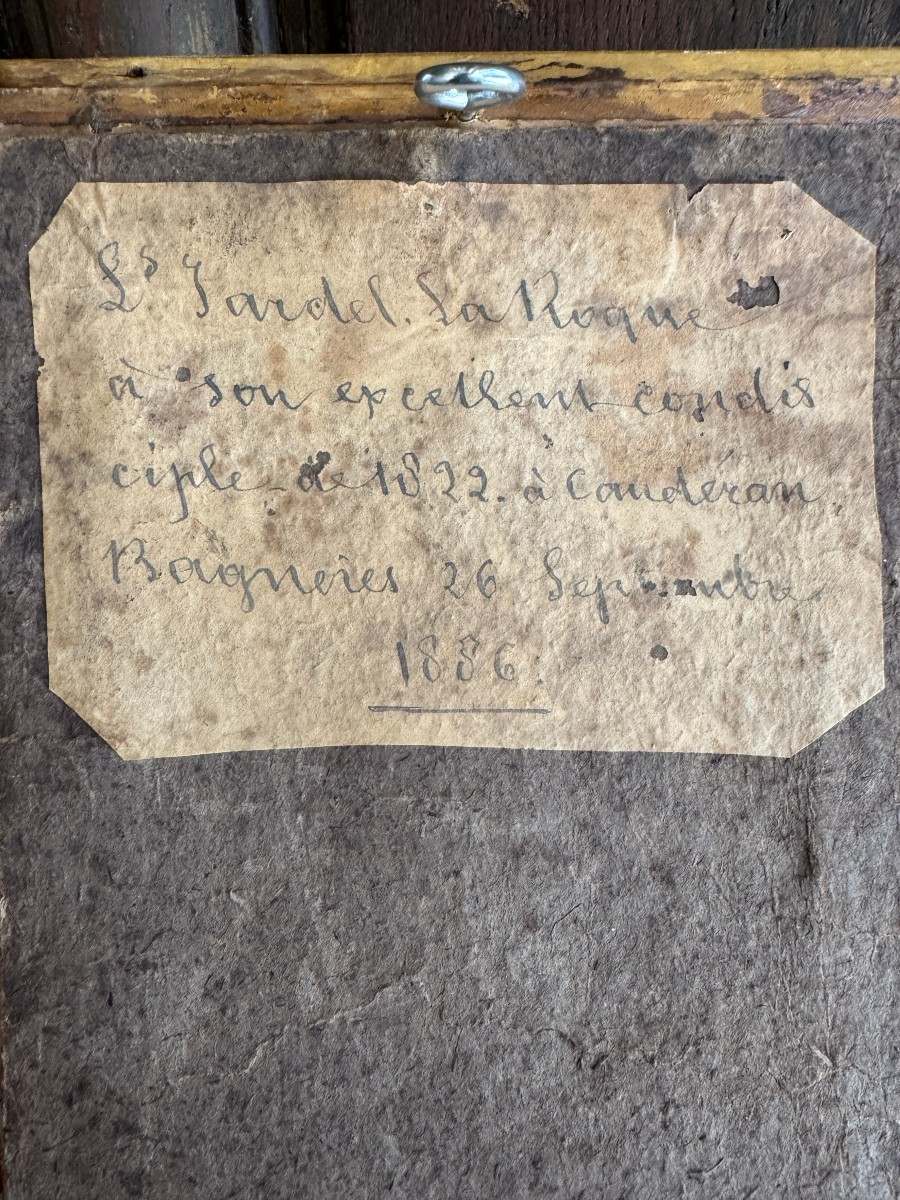 Ls Jardel. La Roque
à son excellent condis
ciple de 1822. à Caudéran
Bagneres 26 Septembre
1886.